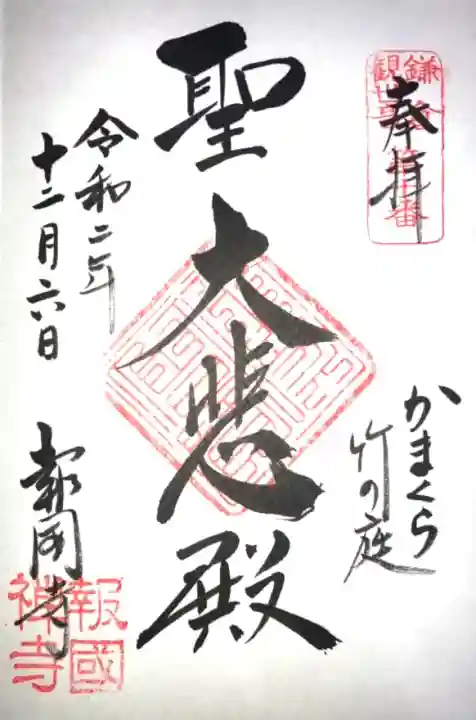 奉拝
かまくら
竹の庭
聖大悲殿
令和二年
十二月六日
報国寺
報國
禅寺